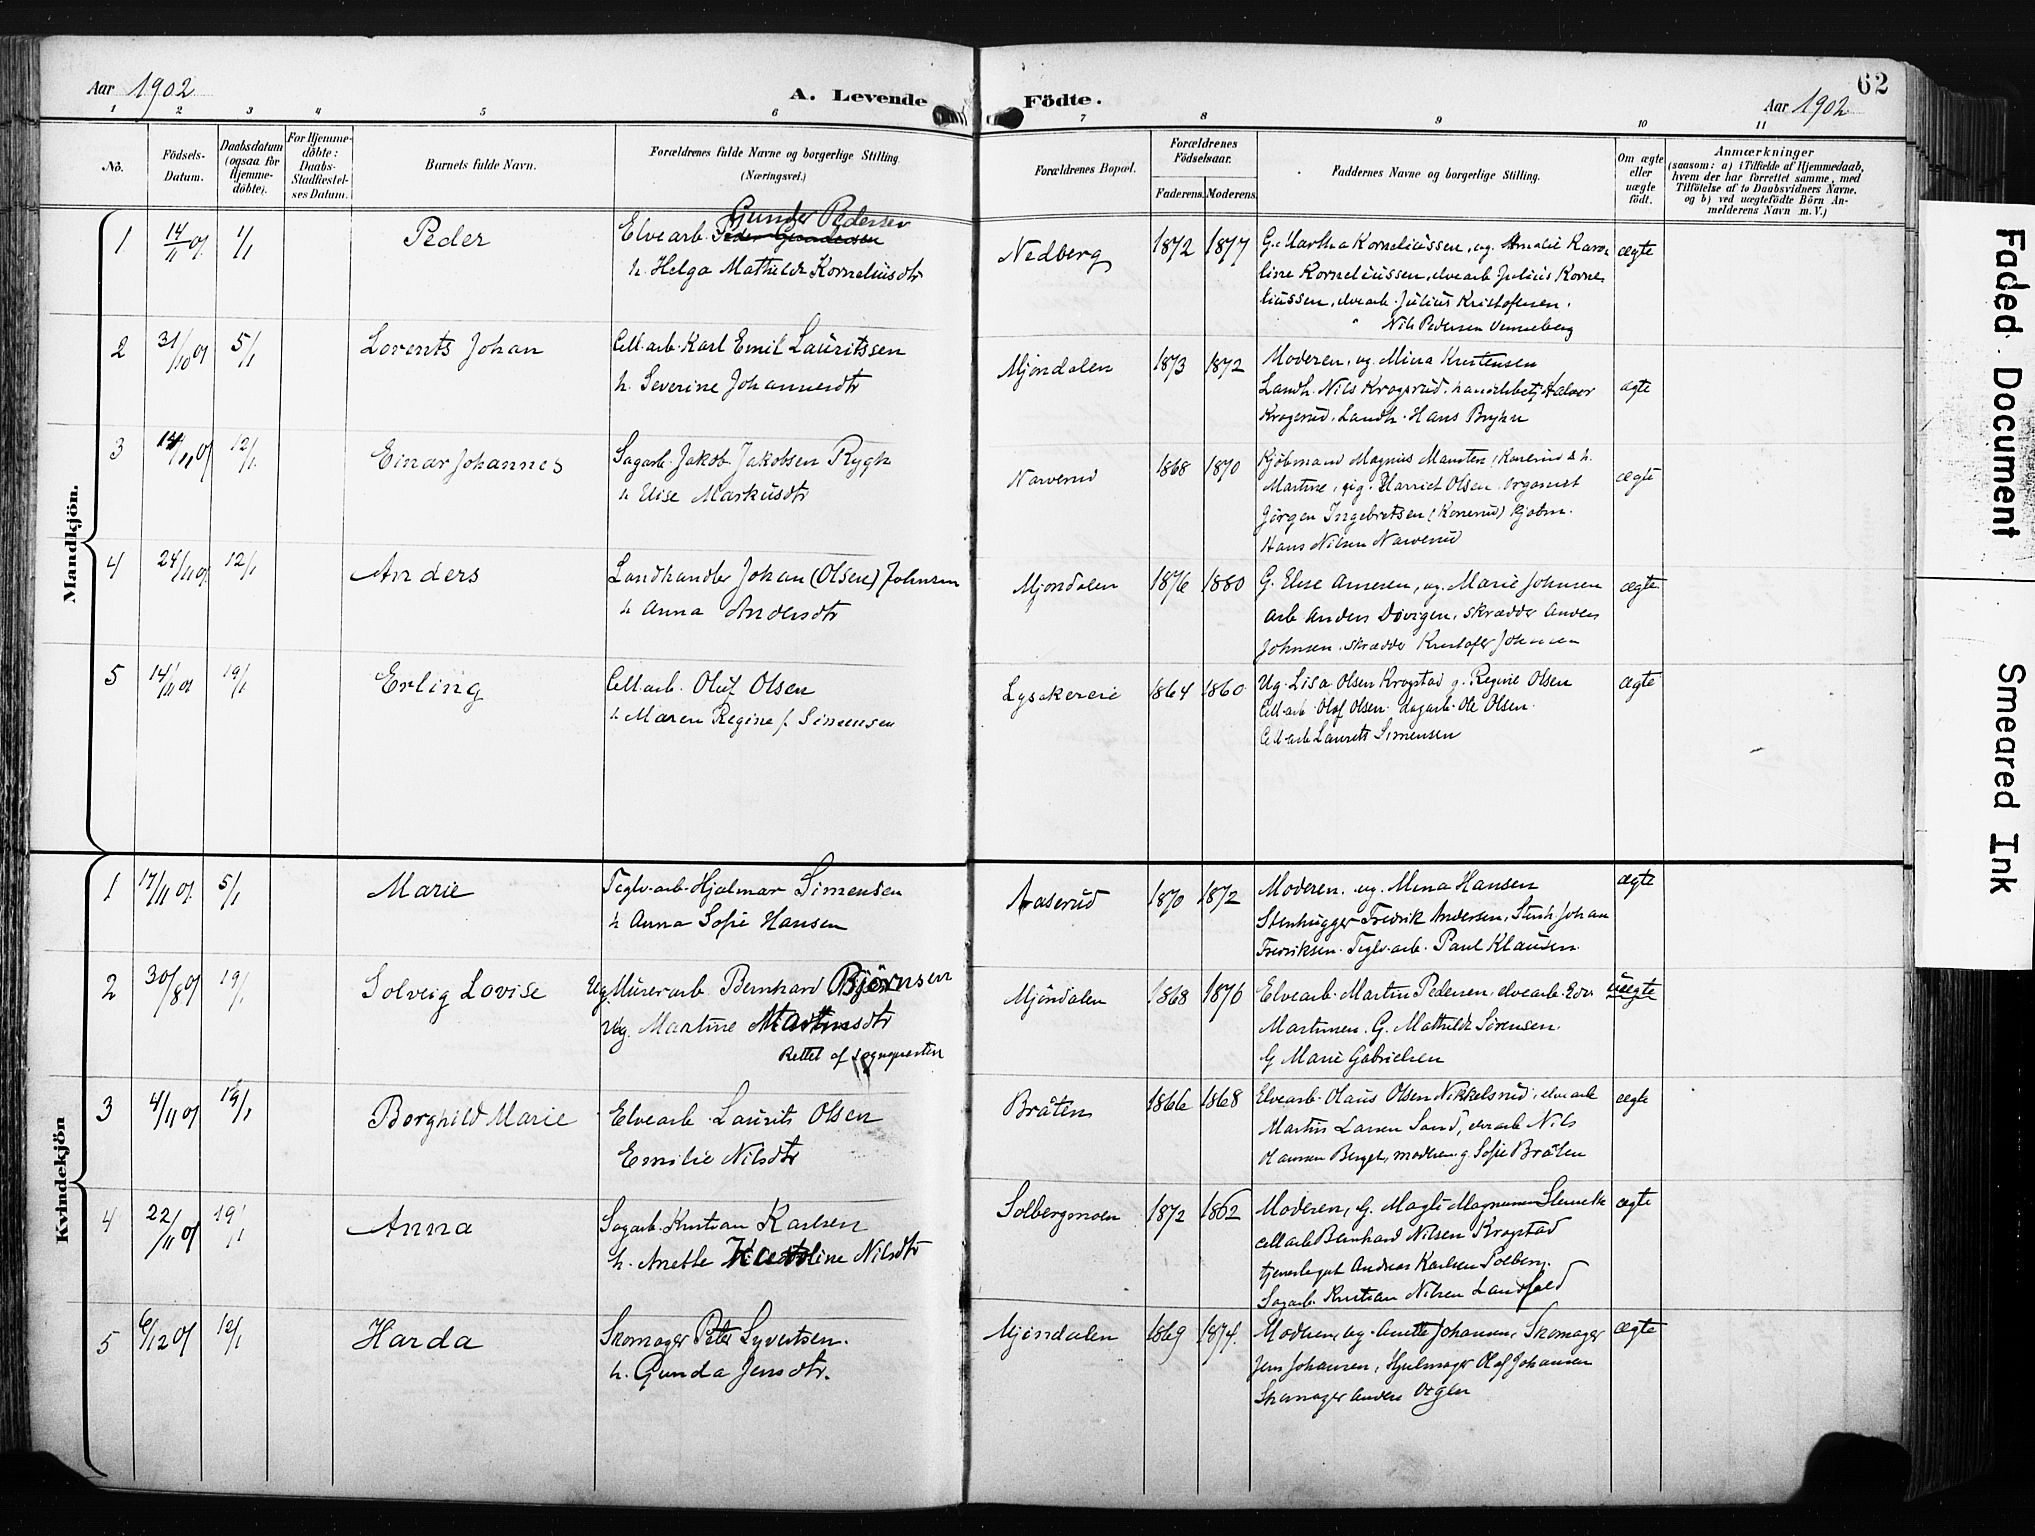 Aar 1902
A. Levende Födte.
62
Aar 1902
1 2 3 4 5 6 7 8 9 10 11
No.
Födsels-Datum.
Daabsdatum (ogsaa for Hjemme-döbte).
For Hjemme-döbte: Daabs-Stadfæstel-ses Datum.
Barnets fulde Navn.
Forældrenes fulde Navne og borgerlige Stilling.
(Næringsvei.)
Forældrenes Bopæl.
Forældrenes Födselsaar.
Faderens. Moderens.
Faddernes Navne og borgerlige Stilling.
Om ægte eller uægte födt.
Anmærkninger
(saasom: a) i Tilfælde af Hjemmedaab,
hvem der har forrettet samme, med
Tilföielse af to Daabsvidners Navne.
og b) ved uægtefödte Börn An-
melderens Navn m. V.)
Mandkjön.
1 14/11 01 1/1 Peder
Gunder Pedersen
Elvearb. Peder Gundersen
h. Helga Mathilde Korneliusdtr
Nedberg 1872 1877
G. Martha Korneliussen, ug. Amalie Karo-
line Korneliussen, elvearb Julius Korne-
liussen, elvearb. Julius Kristofersen.
Nils Pedersen Venneberg
ægte
2 31/10 01 5/1 Lorents Johan
Cell.arb. Karl Emil Lauritssen
h. Severine Johannesdtr
Mjöndalen 1873 1872
Moderen, ug. Mina Kristensen
Landh. Nils Krogsrud, handelsbetj Halvor
Krogsrud, Landh. Hans Bryhn
ægte
3 14/11 01 12/1 Einar Johannes
Sagarb. Jakob Jakobsen Rygh
h Elise Markusdtr
Narverud 1868 1870
Kjöbmand Magnus (Konerud) & h.
Martine, pig. Harriet Olsen. Organist
Jörgen Ingebretsen (Konerud) kjøbm.
Hans Nilsen Narverud
ægte
4 24/11 01 12/1 Anders
Landhandler Johan (Olsen) Johnsen
h Anna Andersdtr
Mjöndalen 1876 1880
G. Else Arnesen, ug. Marie Johnsen
Arb Anders Dövigen, skrædder Anders
Johnsen, skrædder Kristofer Johnsen
ægte
5 14/11 01 19/1 Erling
Cell.arb. Oluf Olsen
h. Maren Regine f. Simensen
Lysakereie 1864 1860
Ug. Lisa Olsen Krogstad g. Regine Olsen
Cellarb. Olaf Olsen. dagarb. Ole Olsen.
Cellarb Laurits Simensen
ægte
Kvindekjön
1 17/11 01 5/1 Marie
Teglv.arb. Hjalmar Simensen
h Anna Sofie Hansen
Aaserud 1870 1872
Moderen. ug. Mina Hansen
Stenhugger Fredrik Andersen, Stenh. Johan
Fredriksen. Teglv.arb. Paul Klausen.
ægte
2 30/8 01 19/1 Solveig Lovise
Ug. Murerarb. Bernhard Björnsen
Ug. Martine Martinsdtr
Rettet af sognepresten
Mjöndalen 1868 1876
Elvearb. Martin Pedersen, elvearb.
Martinsen. G. Mathilde Sörensen.
G Marie Gabrielsen
uægte
3 4/11 01 19/1 Borghild Marie
Elvearb. Laurits Olsen
Emilie Nilsdtr
Bråten 1866 1868
Elvearb. Olaus Olsen Nikkelsrud, elvearb
Martin Larsen Sand, elvearb Nils
Hansen Berget, modren g Sofie Bråten
ægte
4 22/11 01 19/1 Anna
Sagarb. Kristian Karlsen
h. Anette Karoline Nilsdtr
Solbergmoen 1872 1862
Moderen, G. Magli Magnussen
cellarb Bernhard Nilsen Krogstad
tjenestegut Andreas Karlsen Solberg.
Sagarb. Kristian Nilsen Landfald
ægte
5 6/12 01 12/1 Harda
Skomager Peter Syvertsen.
h. Gunda Jensdtr.
Mjöndalen 1869 1874.
Modren, ug. Anette Johansen, Skomager
Jens Johansen, Hjulmager Olaf Johansen
Skomager Anders
ægte
Faded Document
Smeared Ink